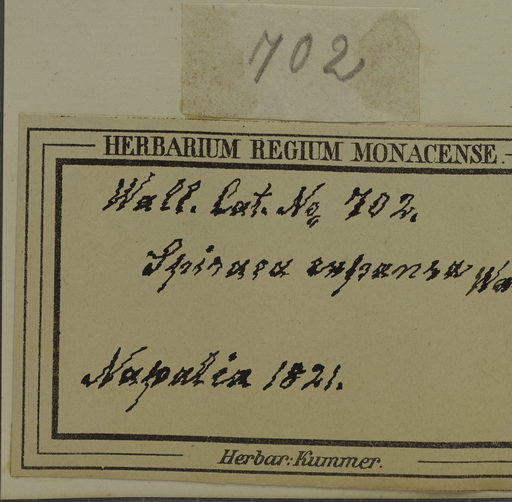 702
HERBARIUM REGIUM MONACENSE.
Wall. Cat. No 702.
Spiraea expansa Wa
Napalia 1821.
Herbar: Kummer.